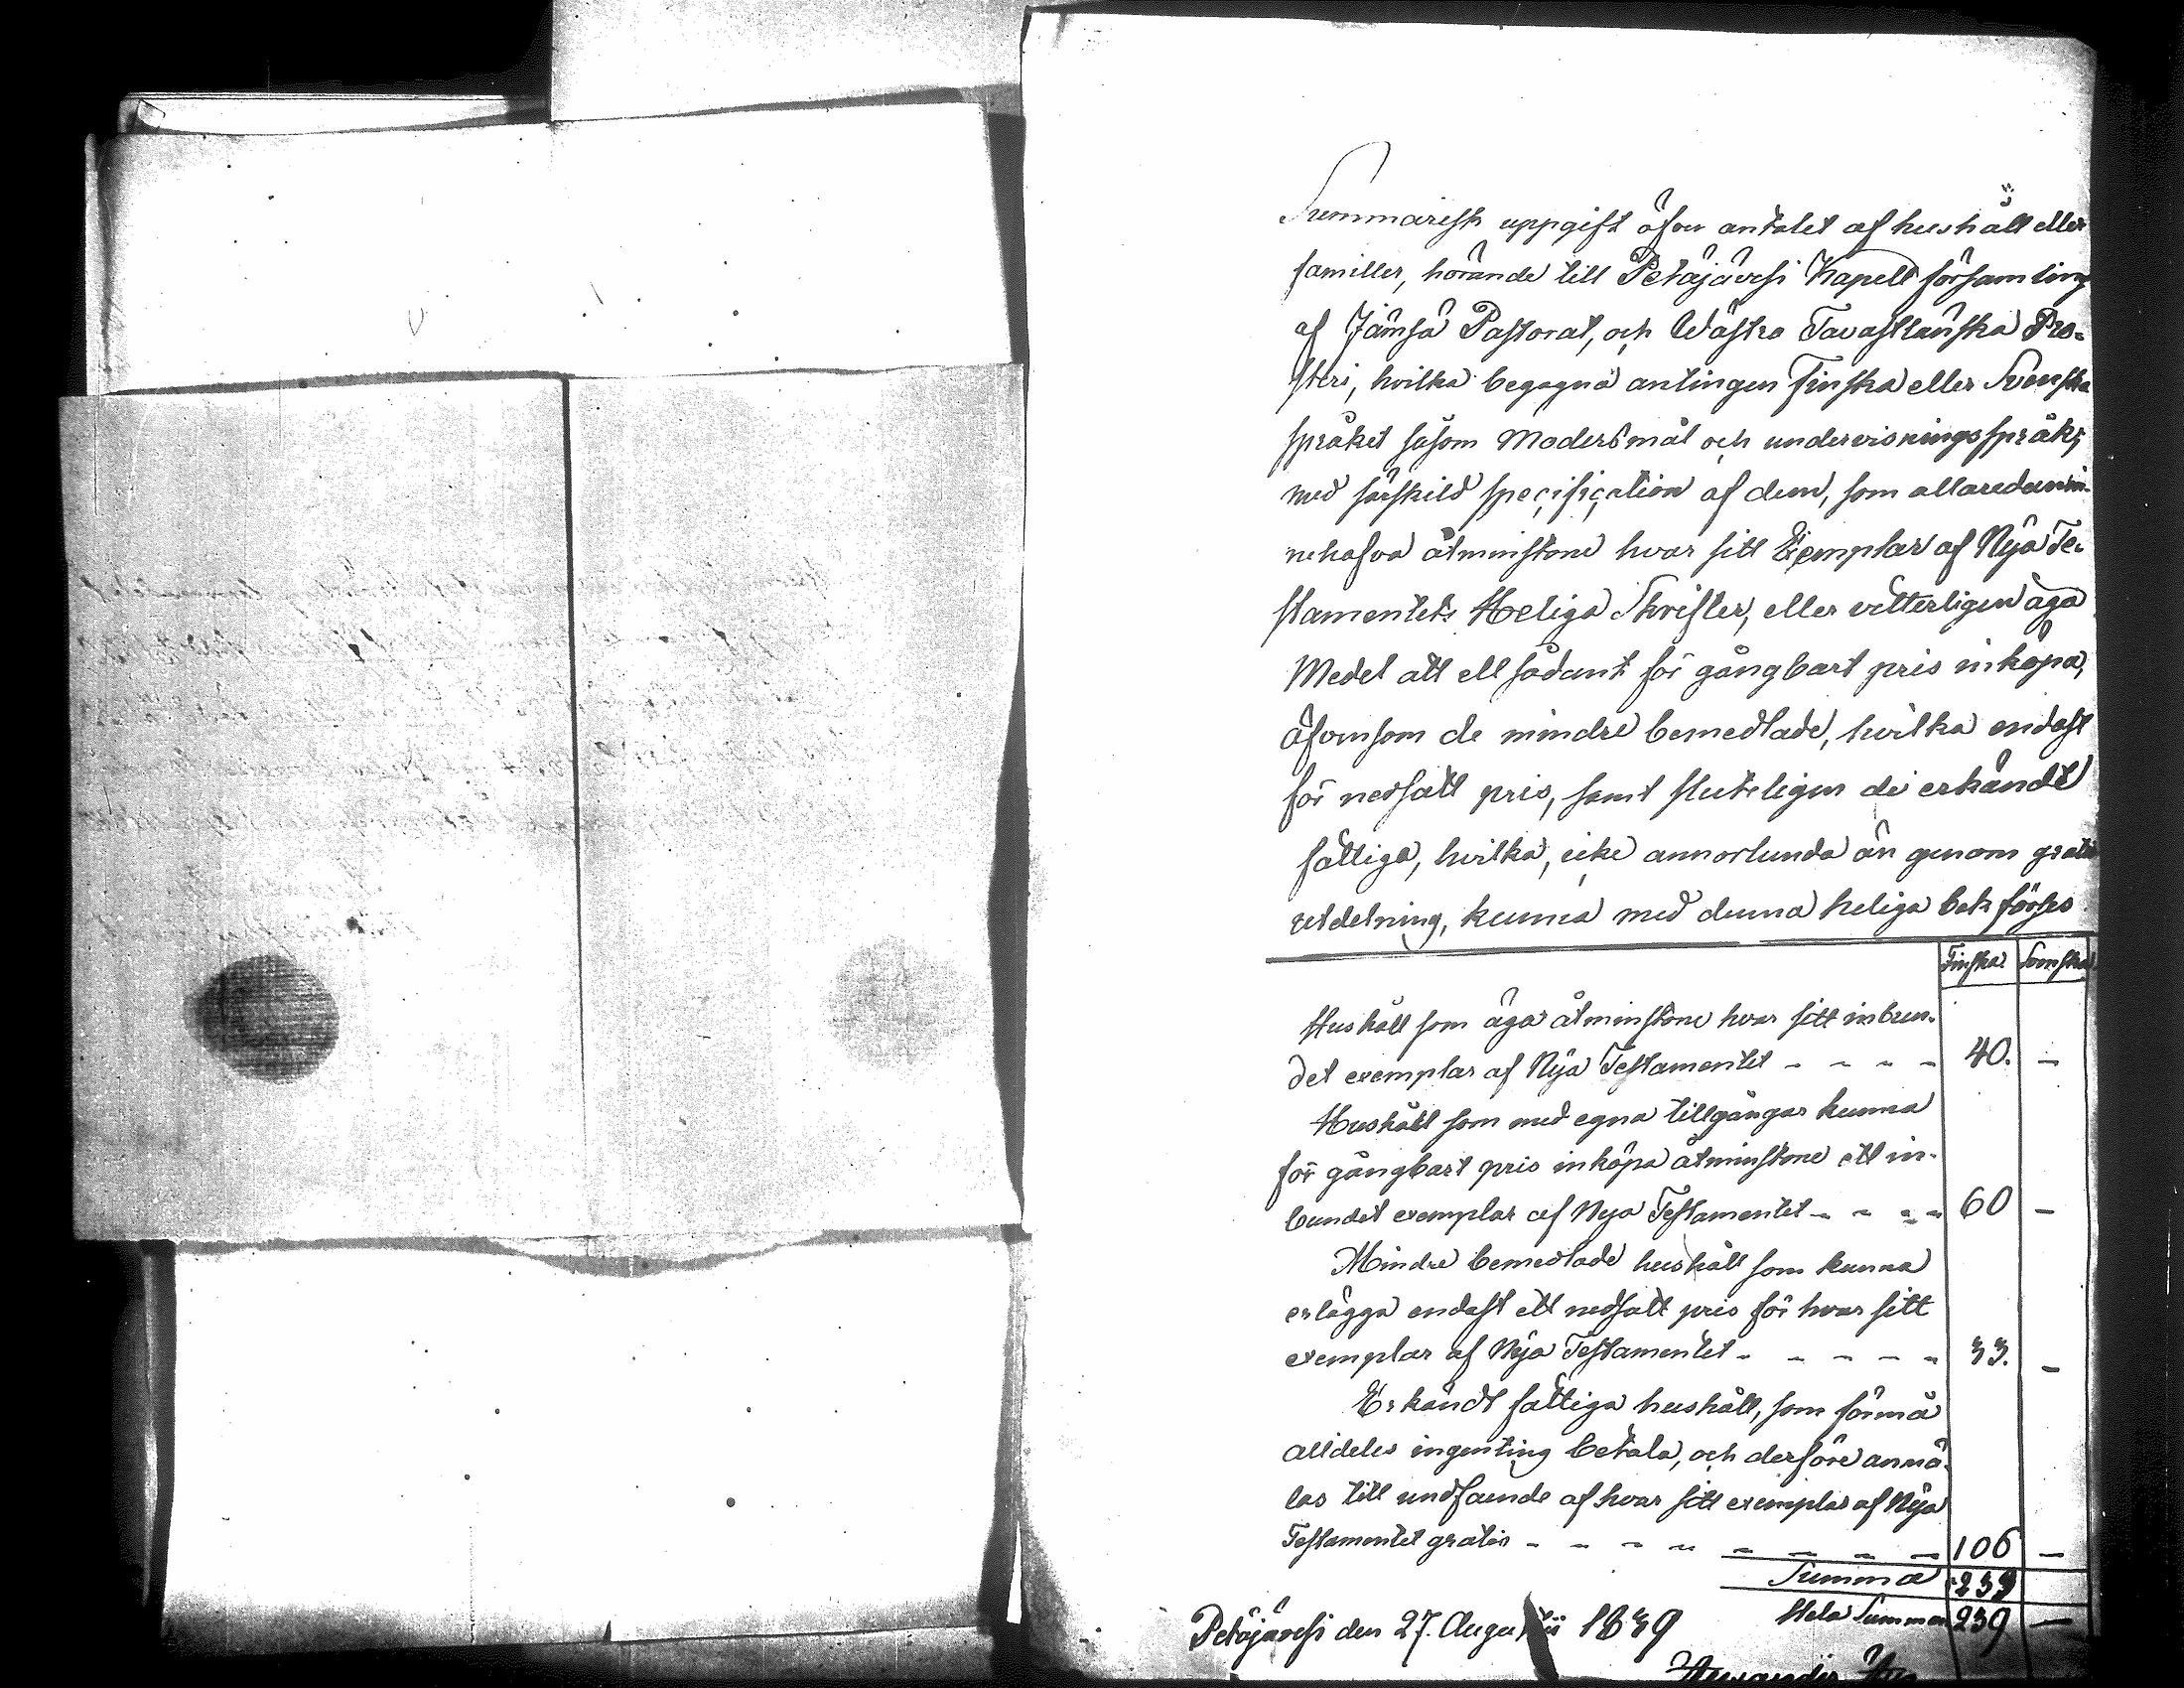 Summarisk uppgift öfver antalet af hushåll eller
familler, hörande till Petäjävesi Kapell församling
af Jämsä Pastorat, och Wästra Tavastländska Pro-
steri, hvilka begagna antingen Finska eller Svenska
språket såsom Modersmål och undervisningsspråk;
med särskild specification af dem, som allaredan in-
nehafva åtminstone hvar sitt Exemplar af Nya Te-
stamentets Heliga Skrifter, eller vetterligen äga
Medel att ett sådant för gångbart pris inköpa,
äfvensom de mindre bemedlade, hvilka endast
för nedsatt pris, samt sluteligen de erkändt
fattiga, hvilka, icke annorlunda än genom gratis
utdelning, kunna med denna heliga bok förses
Finska Svenska
Hushåll som äga åtminstone hvar sitt inbun-
det exemplar af Nya Testamentet - - - - 40. -
Hushåll som med egna tillgångar kunna
för gångbart pris inköpa åtminstone ett in-
bundet exemplar af Nya Testamentet - - - - 60 -
Mindre bemedlade hushåll som kunna
erlägga endast ett nedsatt pris för hvar sitt
exemplar af Nya Testamentet - - - - - 33. -
Erkändt fattiga hushåll, som förmå
alldeles ingenting betala, och derföre anmä-
las till undfående af hvar sitt exemplar af Nya
Testamentet gratis - - - - - - - - 106 -
Summa 239
Hela Summan 239 -
Petäjävesi den 27. Augustii 1839